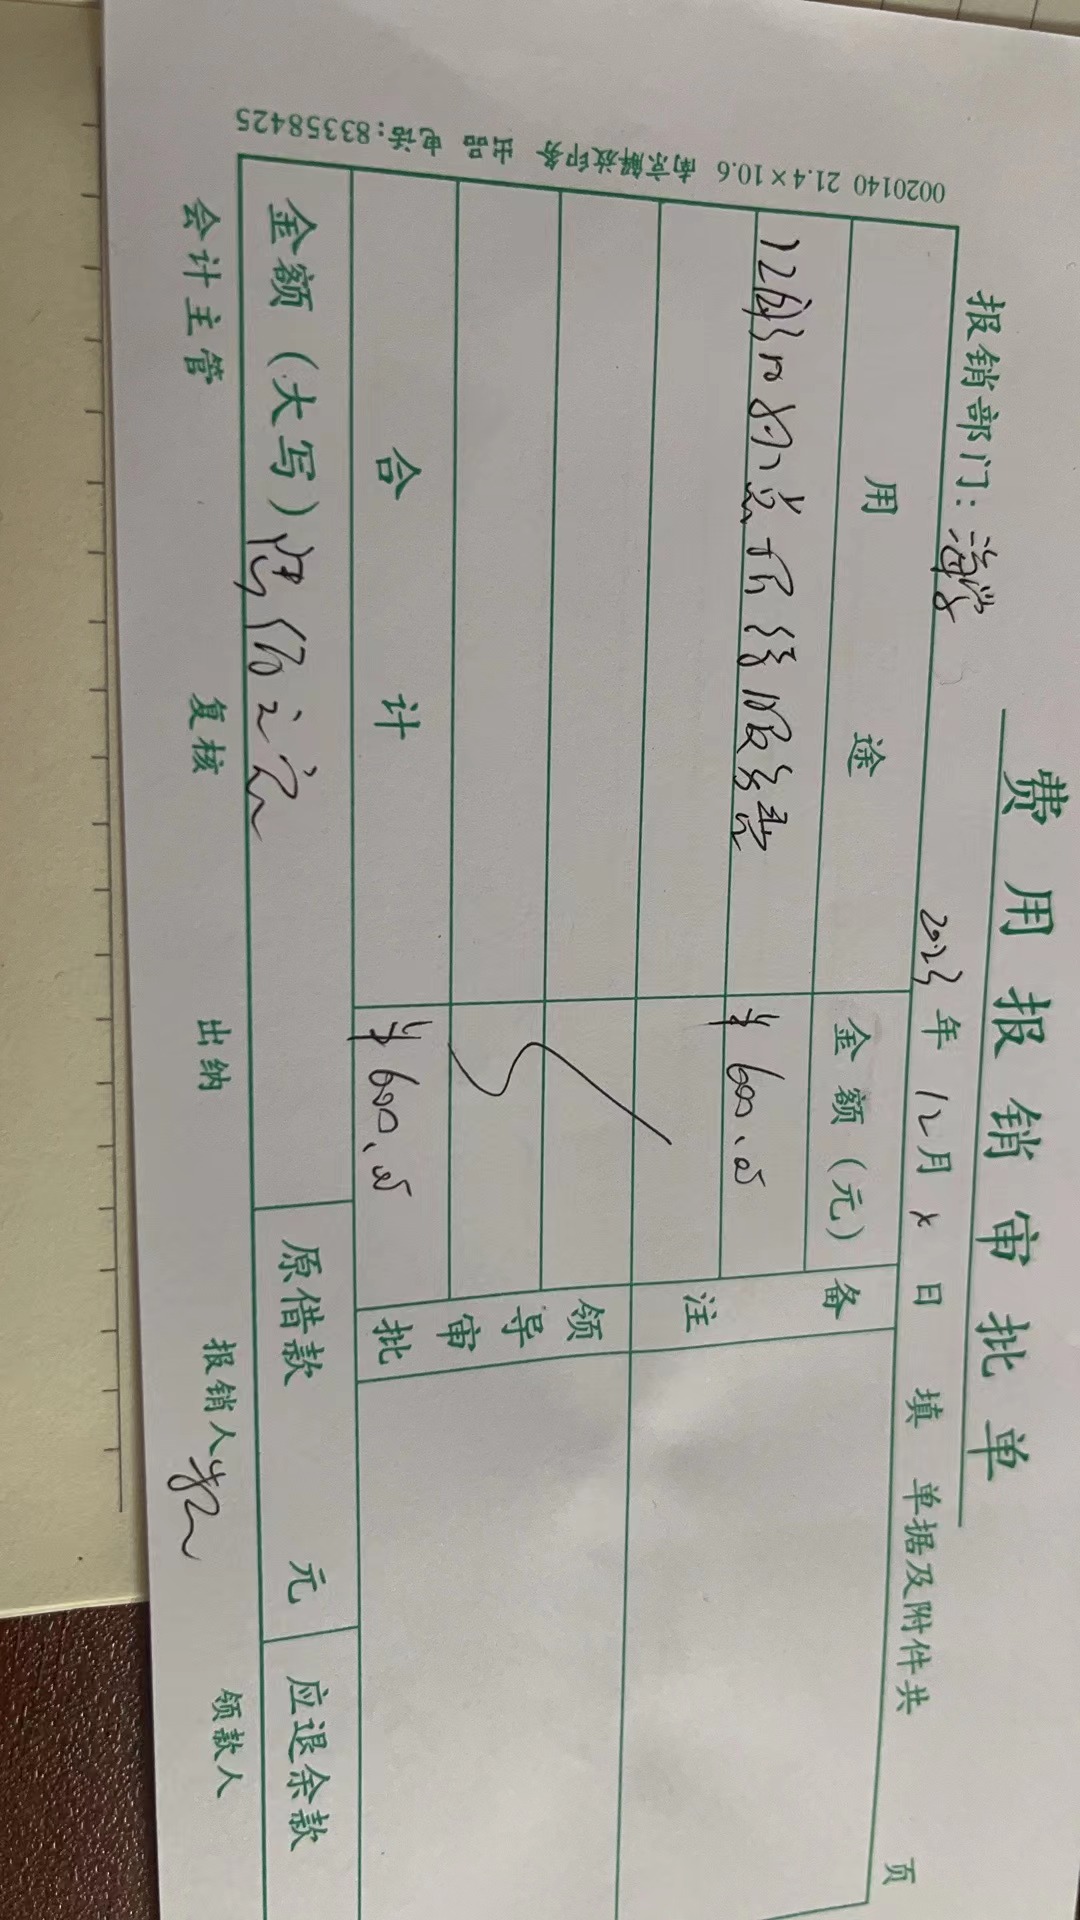 费用报销审批单
报销部门: 2023年12月x日填 单据及附件共 页
用途 金额(元) 备注
¥600.00
领导审批
合计 ¥600.00
金额(大写) 陆佰元 原借款 元 应退余款
会计主管 复核 出纳 报销人 领款人
0020140 21.4×10.6 南京解放印务 出品 电话:83358425